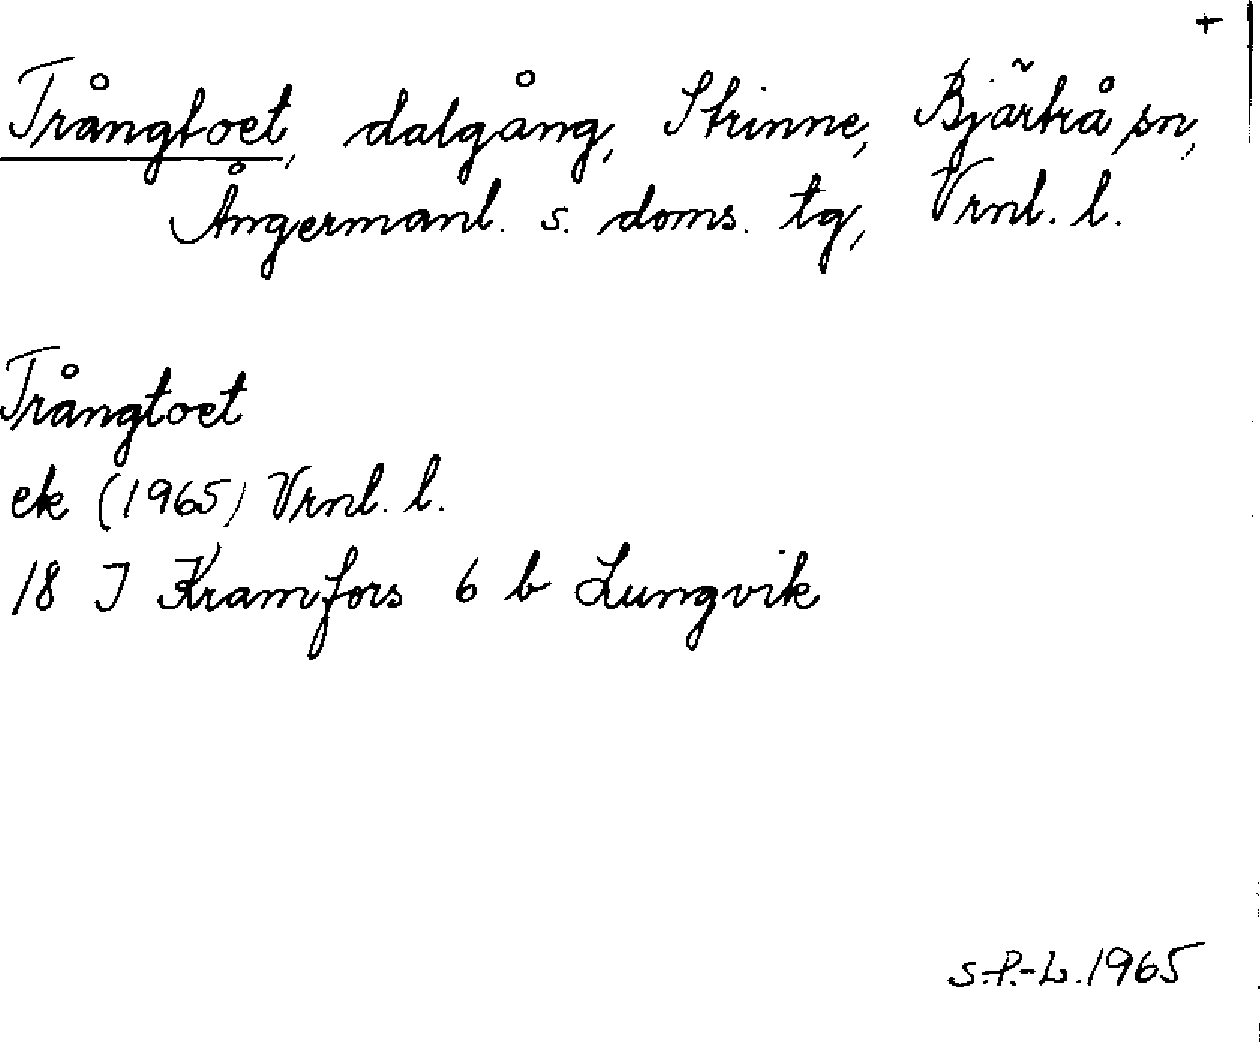 +
Trångtoet, dalgång, Strinne, Bjärtrå sn,
Ångermanl. s. doms. tg, Vrnl. l.
Trångtoet
ek (1965) Vrnl. l.
18 J Kramfors 6 b Lungvik
S.-P.-L. 1965